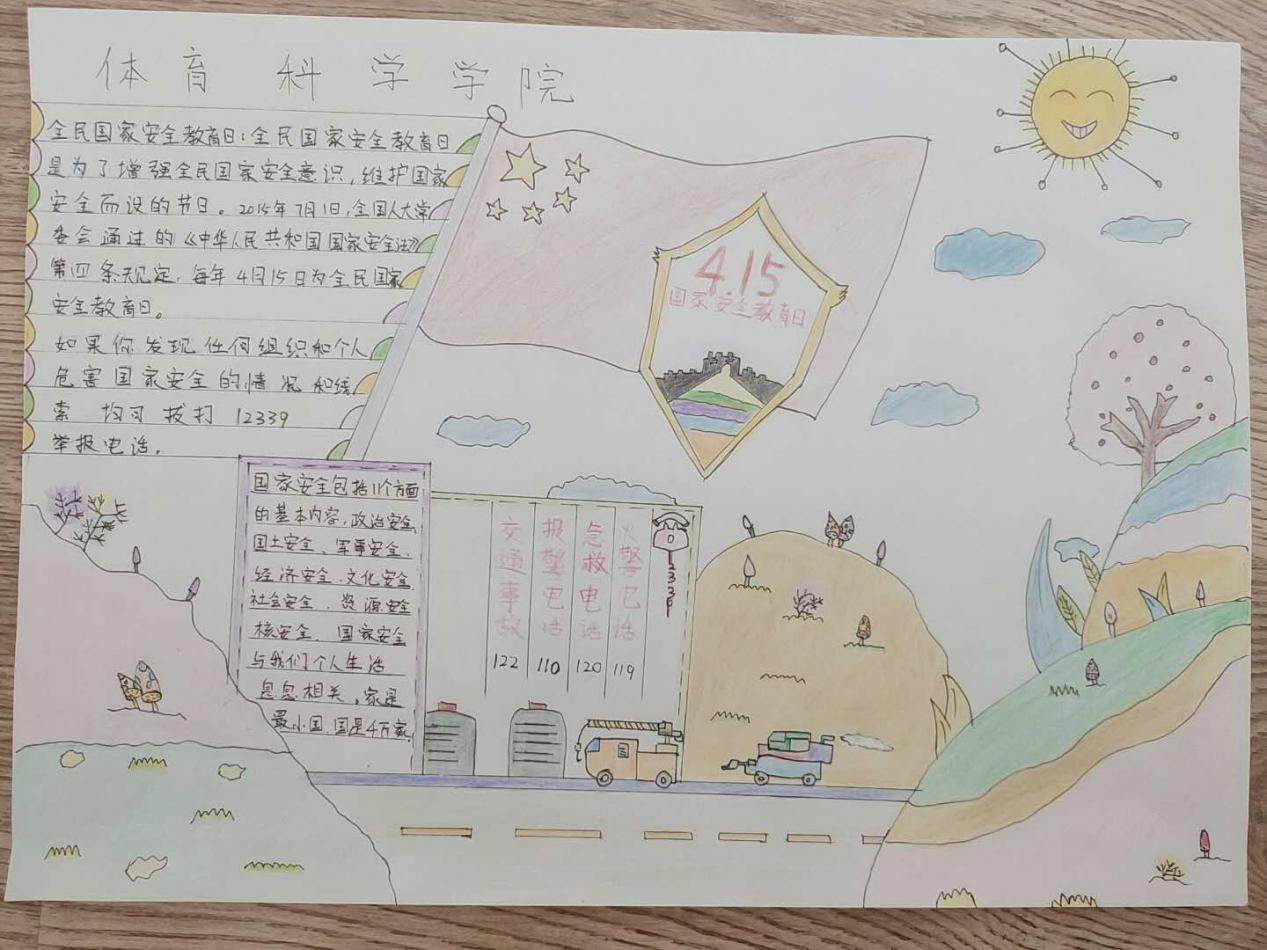 体育科学学院
全民国家安全教育日:全民国家安全教育日
是为了增强全民国家安全意识,维护国家
安全而设的节日。2015年7月1日,全国人大常
委会通过的《中华人民共和国国家安全法》
第四条规定,每年4月15日为全民国家
安全教育日。
如果你发现任何组织和个人
危害国家安全的情况和线
索 均可拨打 12339
举报电话。
4.15
国家安全教育日
国家安全包括11个方面
的基本内容,政治安全
国土安全、军事安全、
经济安全、文化安全
社会安全、资源安全
核安全、国家安全
与我们个人生活
息息相关,家是
最小国,国是千万家
交通事故
122
报警电话
110
急救电话
120
火警电话
119
12339